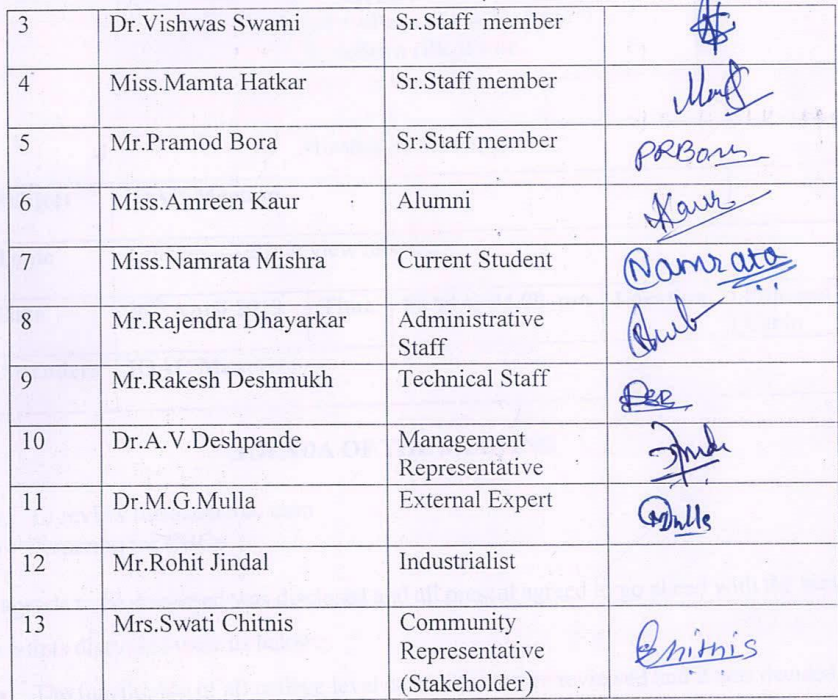 3 Dr.Vishwas Swami Sr.Staff member
4 Miss.Mamta Hatkar Sr.Staff member
5 Mr.Pramod Bora Sr.Staff member PRBora
6 Miss.Amreen Kaur Alumni Kaur
7 Miss.Namrata Mishra Current Student Namrata
8 Mr.Rajendra Dhayarkar Administrative
Staff
9 Mr.Rakesh Deshmukh Technical Staff
10 Dr.A.V.Deshpande Management
Representative
11 Dr.M.G.Mulla External Expert
12 Mr.Rohit Jindal Industrialist
13 Mrs.Swati Chitnis Community
Representative
(Stakeholder) Chitnis